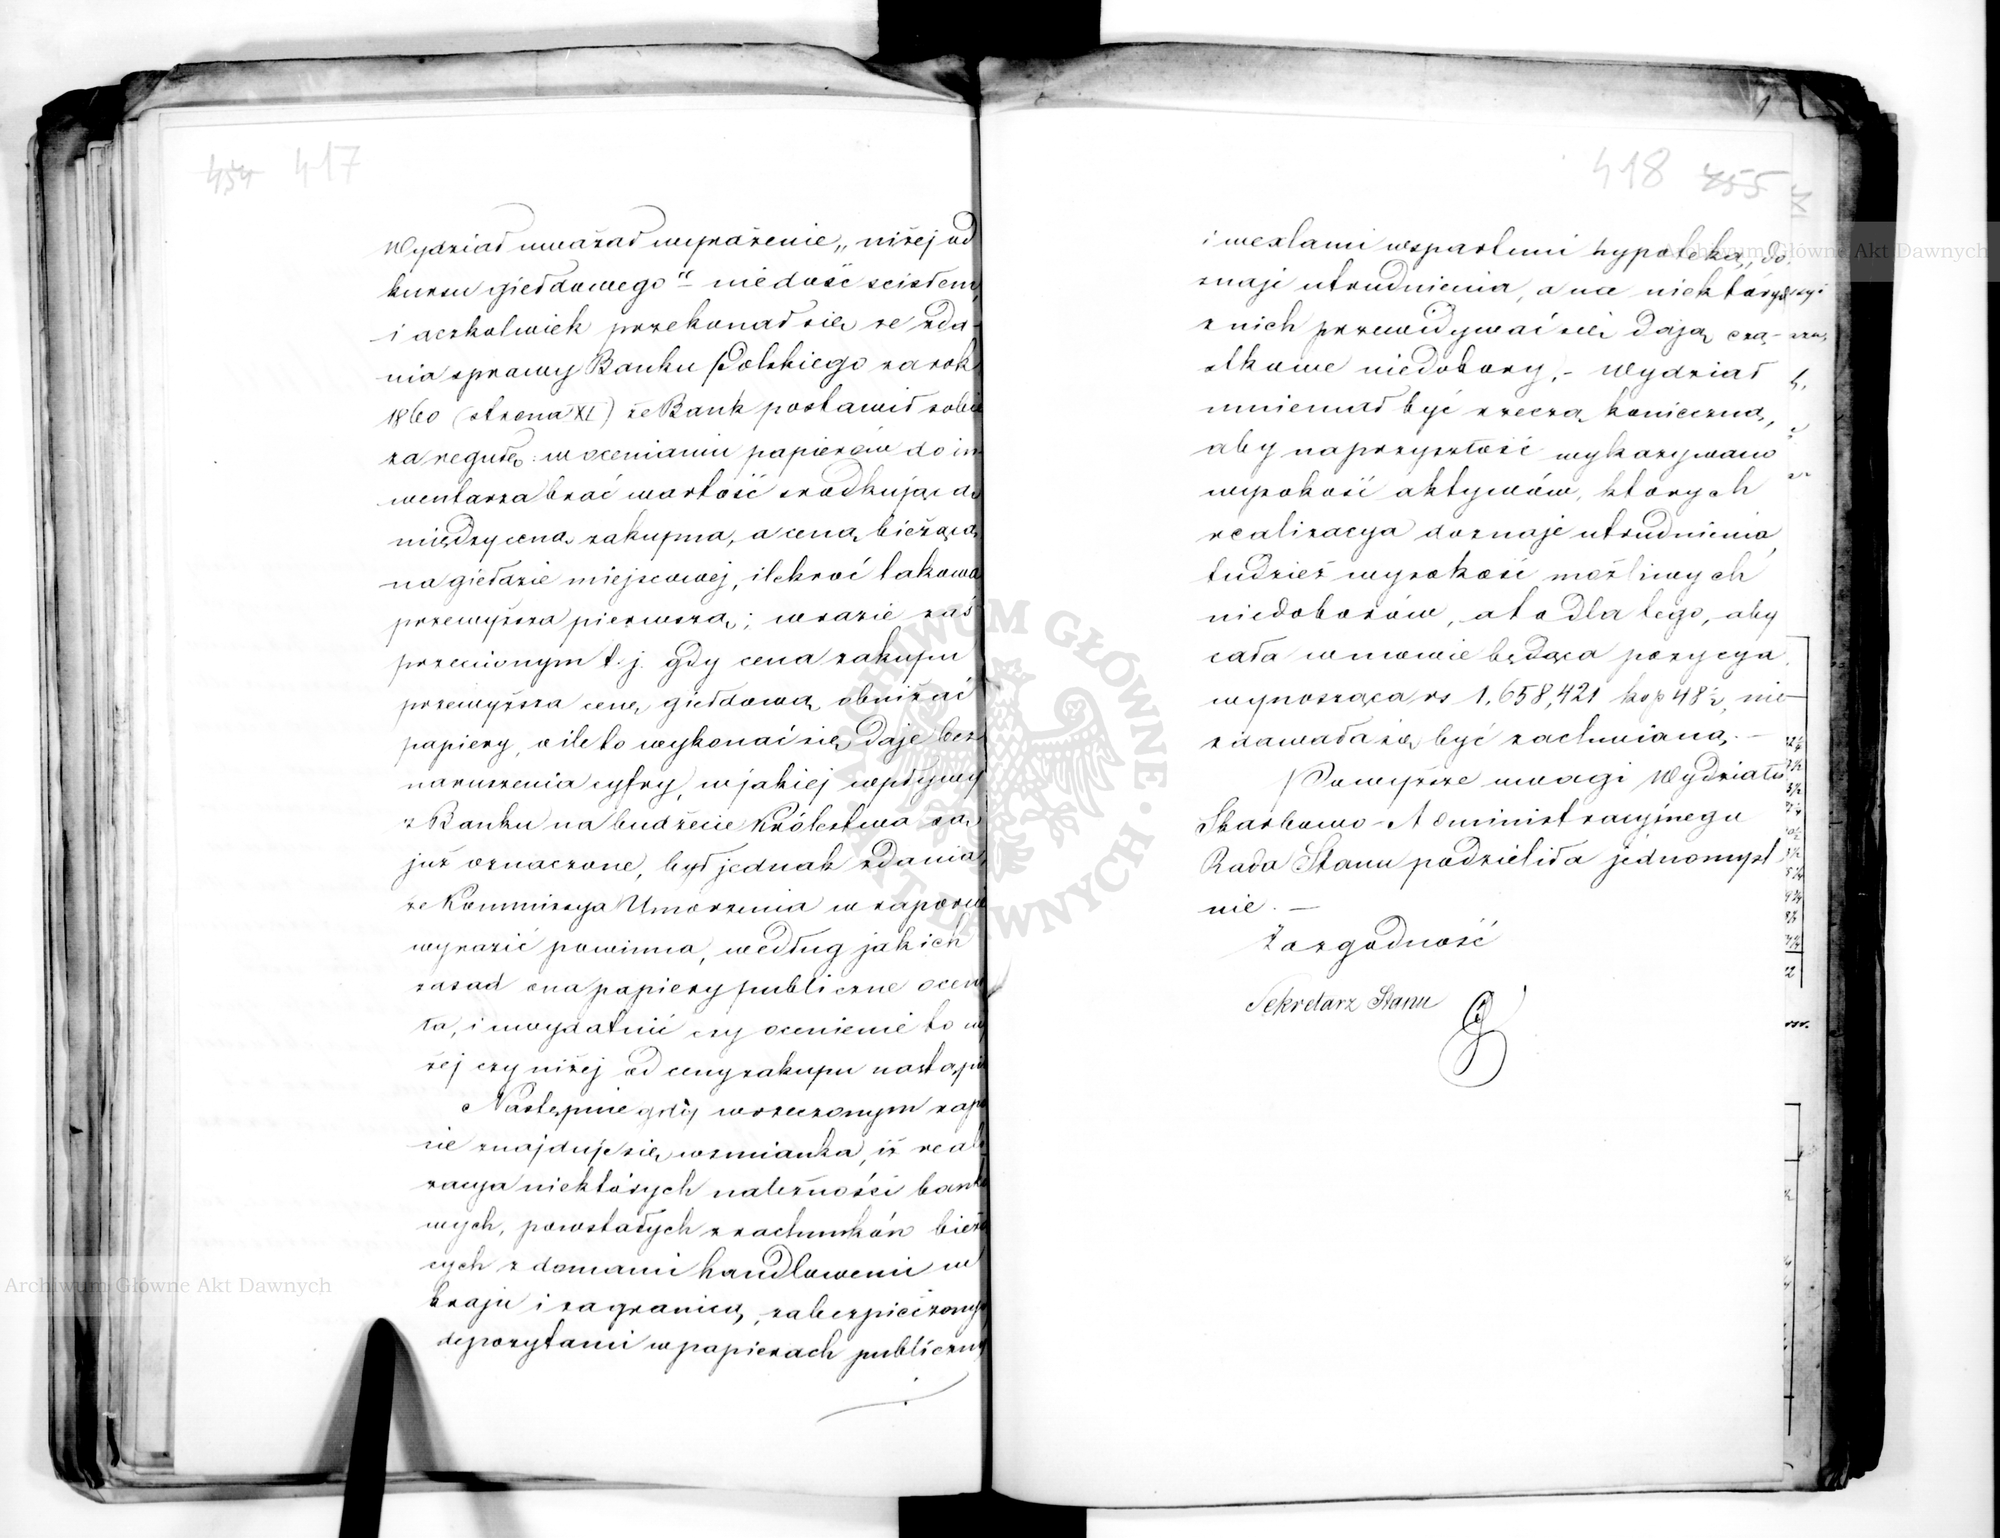 454 417
Wydział uważał wyrażenie „niżej od
kursu giełdowego" niedość ścisłem,
i aczkolwiek przekonał się ze zda-
nia sprawy Banku Polskiego za rok
1860 (strona XL) że Bank postawił sobie
za regułę: w ocenianiu papierów do in
wentarza brać wartość środkującą
między ceną zakupna, a ceną bieżącą
na giełdzie miejscowej, ilekroć takowa
przewyższa pierwszą; w razie zaś
przeciwnym t. j. gdy cena zakupu
przewyższa cenę giełdową, obniżać
papiery, o ile to wykonać się daje bez
naruszenia cyfry, w jakiej wpływy
z Banku na budżecie Królestwa są
już oznaczone, był jednak zdania,
że Kommissya Umorzenia w raporcie
wyrazić powinna, według jakich
zasad ona papiery publiczne oceni
ła, i uwydatnić czy ocenienie to wy
żej czy niżej od ceny zakupu nastąpiło
Następnie gdy w rzeczonym rapo
cie znajduje się wzmianka, iż reali
zacya niektórych należności banko
wych, powstałych z rachunków bieżą
cych z domami handlowemi w
kraju i zagranicą, zabezpieczonych
depozytami w papierach publicznych
418 455
i wexlami wspartemi hypoteką, do-
znaje utrudnienia, a na niektórych
z nich przewidywać się dają czą-
stkowe niedobory, - Wydział
mniemał być rzeczą konieczną,
aby na przyszłość wykazywano
wysokość aktywów, których
realizacya doznaje utrudnienia,
tudzież wysokość możliwych
niedoborów, a to dla tego, aby
cała w mowie będąca pozycya,
wynosząca rs 1,658,421 kop 48½, nie
zdawała się być zachwianą. —
Powyższe uwagi Wydziału
Skarbowo-Administracyjnego
Rada Stanu podzieliła jednomyśl
nie. —
Za zgodność
Sekretarz Stanu
Archiwum Główne Akt Dawnych
ARCHIWUM GŁÓWNE AKT DAWNYCH
Archiwum Główne Akt Dawnych